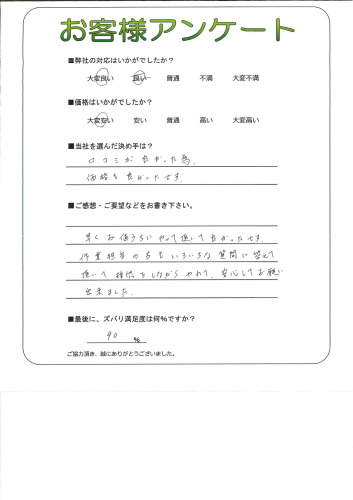 お客様アンケート
■弊社の対応はいかがでしたか？
大変良い 良い 普通 不満 大変不満
■価格はいかがでしたか？
大変安い 安い 普通 高い 大変高い
■当社を選んだ決め手は？
口コミが良かった為、
価格も良かったです
■ご感想・ご要望などをお書き下さい。
早くお値うちにやって頂いて良かったです。
作業担当の方もいろいろな質問に答えて
頂いて確認をしながらやれて、安心してお願い
出来ました。
■最後に、ズバリ満足度は何％ですか？
90 ％
ご協力頂き、誠にありがとうございました。